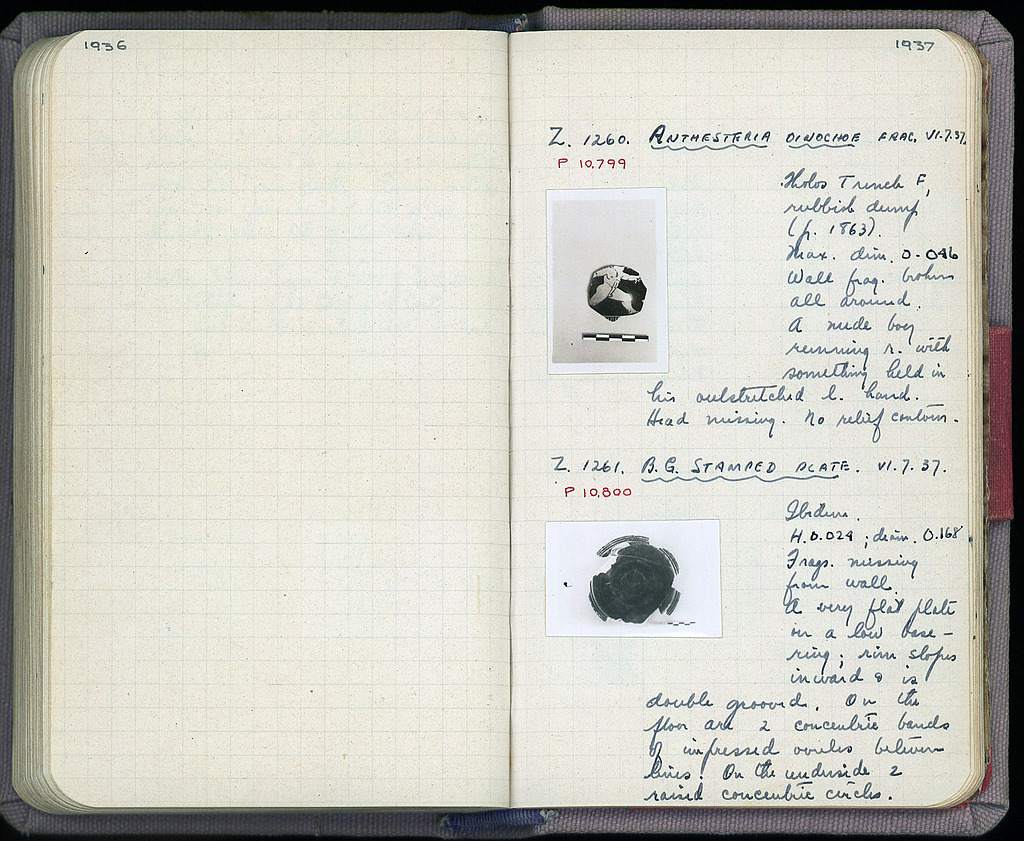 1936
1937
Z. 1260. ANTHESTERIA OINOCHOE FRAG. VI.7.37.
P 10,799
Tholos Trench F,
rubbish dump
(p. 1863).
Max. dim. 0.046
Wall frag. broken
all around.
A nude boy
running r. with
something held in
his outstretched l. hand.
Head missing. No relief contour.
Z. 1261. B.G. STAMPED PLATE. VI.7.37.
P 10,800
Ibidem.
H. 0.024; diam. 0.168
Frags. missing
from wall.
A very flat plate
on a low base-
ring; rim slopes
inward & is
double grooved. On the
floor are 2 concentric bands
of impressed ovules between
lines. On the underside 2
raised concentric circles.